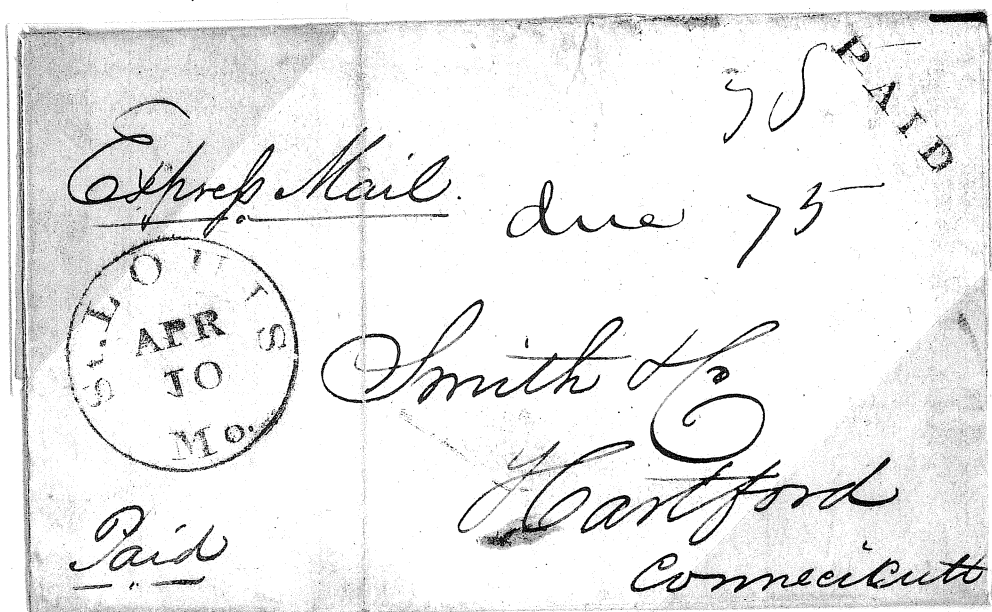 PAID
75
Express Mail.
due 75
St. LOUIS
APR
10
Mo.
Smith & Co
Hartford
Connecicutt
Paid